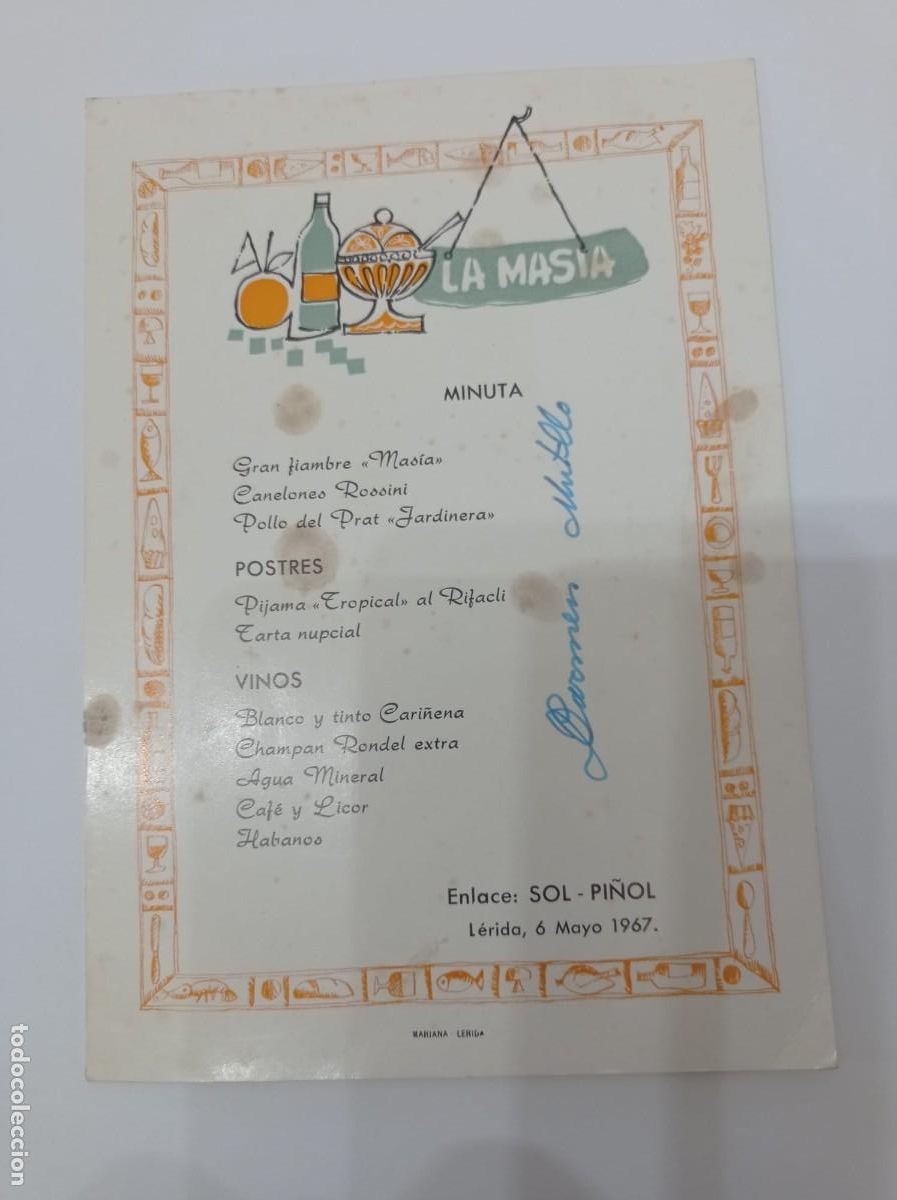 LA MASIA
MINUTA
Gran fiambre «Masía»
Canelones Rossini
Pollo del Prat «Jardinera»
POSTRES
Pijama «Tropical» al Rifacli
Tarta nupcial
VINOS
Blanco y tinto Cariñena
Champan Rondel extra
Agua Mineral
Café y Licor
Habanos
Carmen
Enlace: SOL - PIÑOL
Lérida, 6 Mayo 1967.
MARIANA - LERIDA
todocoleccion